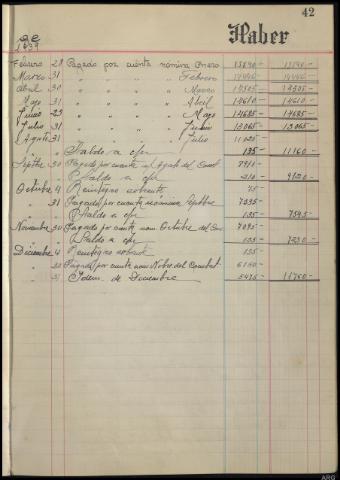 42
de
1939
Haber
Febrero 28 Pagado por cuenta nómina Enero 13890- 13890-
Marzo 31 " " " " Febrero 14446- 14446-
Abril 30 " " " " Marzo 14505- 14505-
Mayo 31 " " " " Abril 14610- 14610-
Junio 29 " " " " Mayo 14685- 14685-
Julio 31 " " " " Junio 13065- 13065-
Agosto 31 " " " " Julio 11025-
" " Saldo a c/n 135- 11160-
Septbre 30 Pagado por cuenta Agosto del
" " Saldo a c/n 210- 9120-
Octubre 4 Reintegro sobrante 75-
" 31 Pagado por cuenta nómina Septbre 7335-
" " Saldo a c/n 135- 7545-
Noviembre 30 Pagado por cuenta nom Octubre del 7095-
" " Saldo a c/n 135- 7230-
Diciembre 4 Reintegro sobrante 135-
" Pagado por cuenta nom Nobre. del Combat
" " Idem. de Diciembre 5475- 11760-
ARG